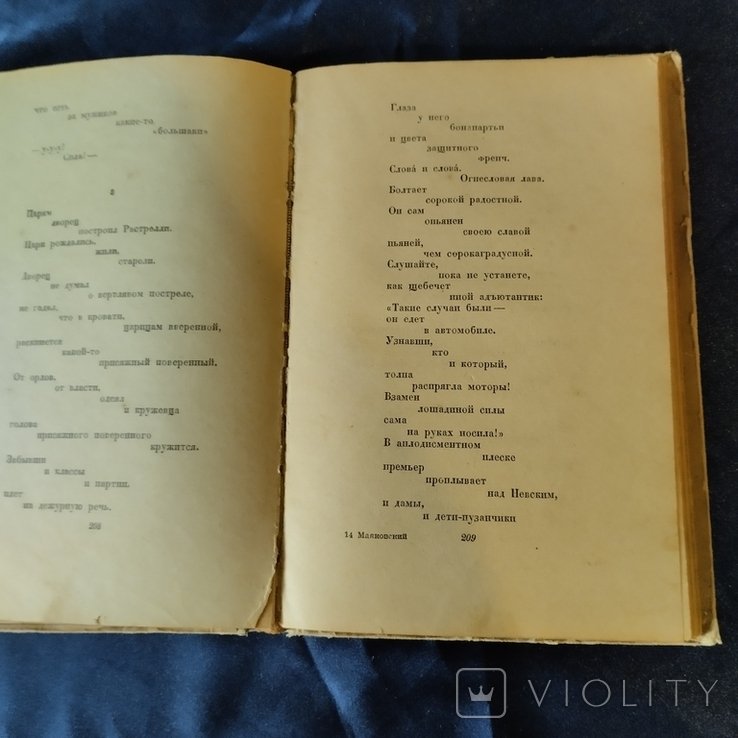 что есть
за мужиков
какие-то
«большаки»
— у-у-у!
Сила! —
3
Царям
дворец
построил Растрелли.
Цари рождались,
жили,
старели.
Дворец
не думал
о вертлявом постреле,
не гадал,
что в кровати,
царицам вверенной,
раскинется
какой-то
присяжный поверенный.
От орлов,
от власти,
одеял
и кружевца
голова
присяжного поверенного
кружится.
Забывши
и классы
и партии,
идет
на дежурную речь.
208
Глаза
у него
бонапартьи
и цвета
защитного
френч.
Слова́ и слова́.
Огнесловая лава.
Болтает
сорокой радостной.
Он сам
опьянен
своею славой
пьяней,
чем сорокаградусной.
Слушайте,
пока не устанете,
как щебечет
иной адъютантик:
«Такие случаи были —
он едет
в автомобиле.
Узнавши,
кто
и который,
толпа
распрягла моторы!
Взамен
лошадиной силы
сама
на руках носила!»
В аплодисментном
плеске
премьер
проплывает
над Невским,
и дамы,
и дети-пузанчики
14 Маяковский
209
VIOLITY